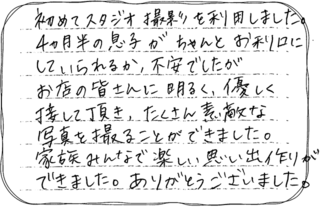 初めてスタジオ撮影を利用しました。
4ヵ月半の息子がちゃんとお利口に
していられるか、不安でしたが
お店の皆さんに明るく、優しく
接して頂き、たくさん素敵な
写真を撮ることができました。
家族みんなで楽しい思い出作りが
できました。ありがとうございました。